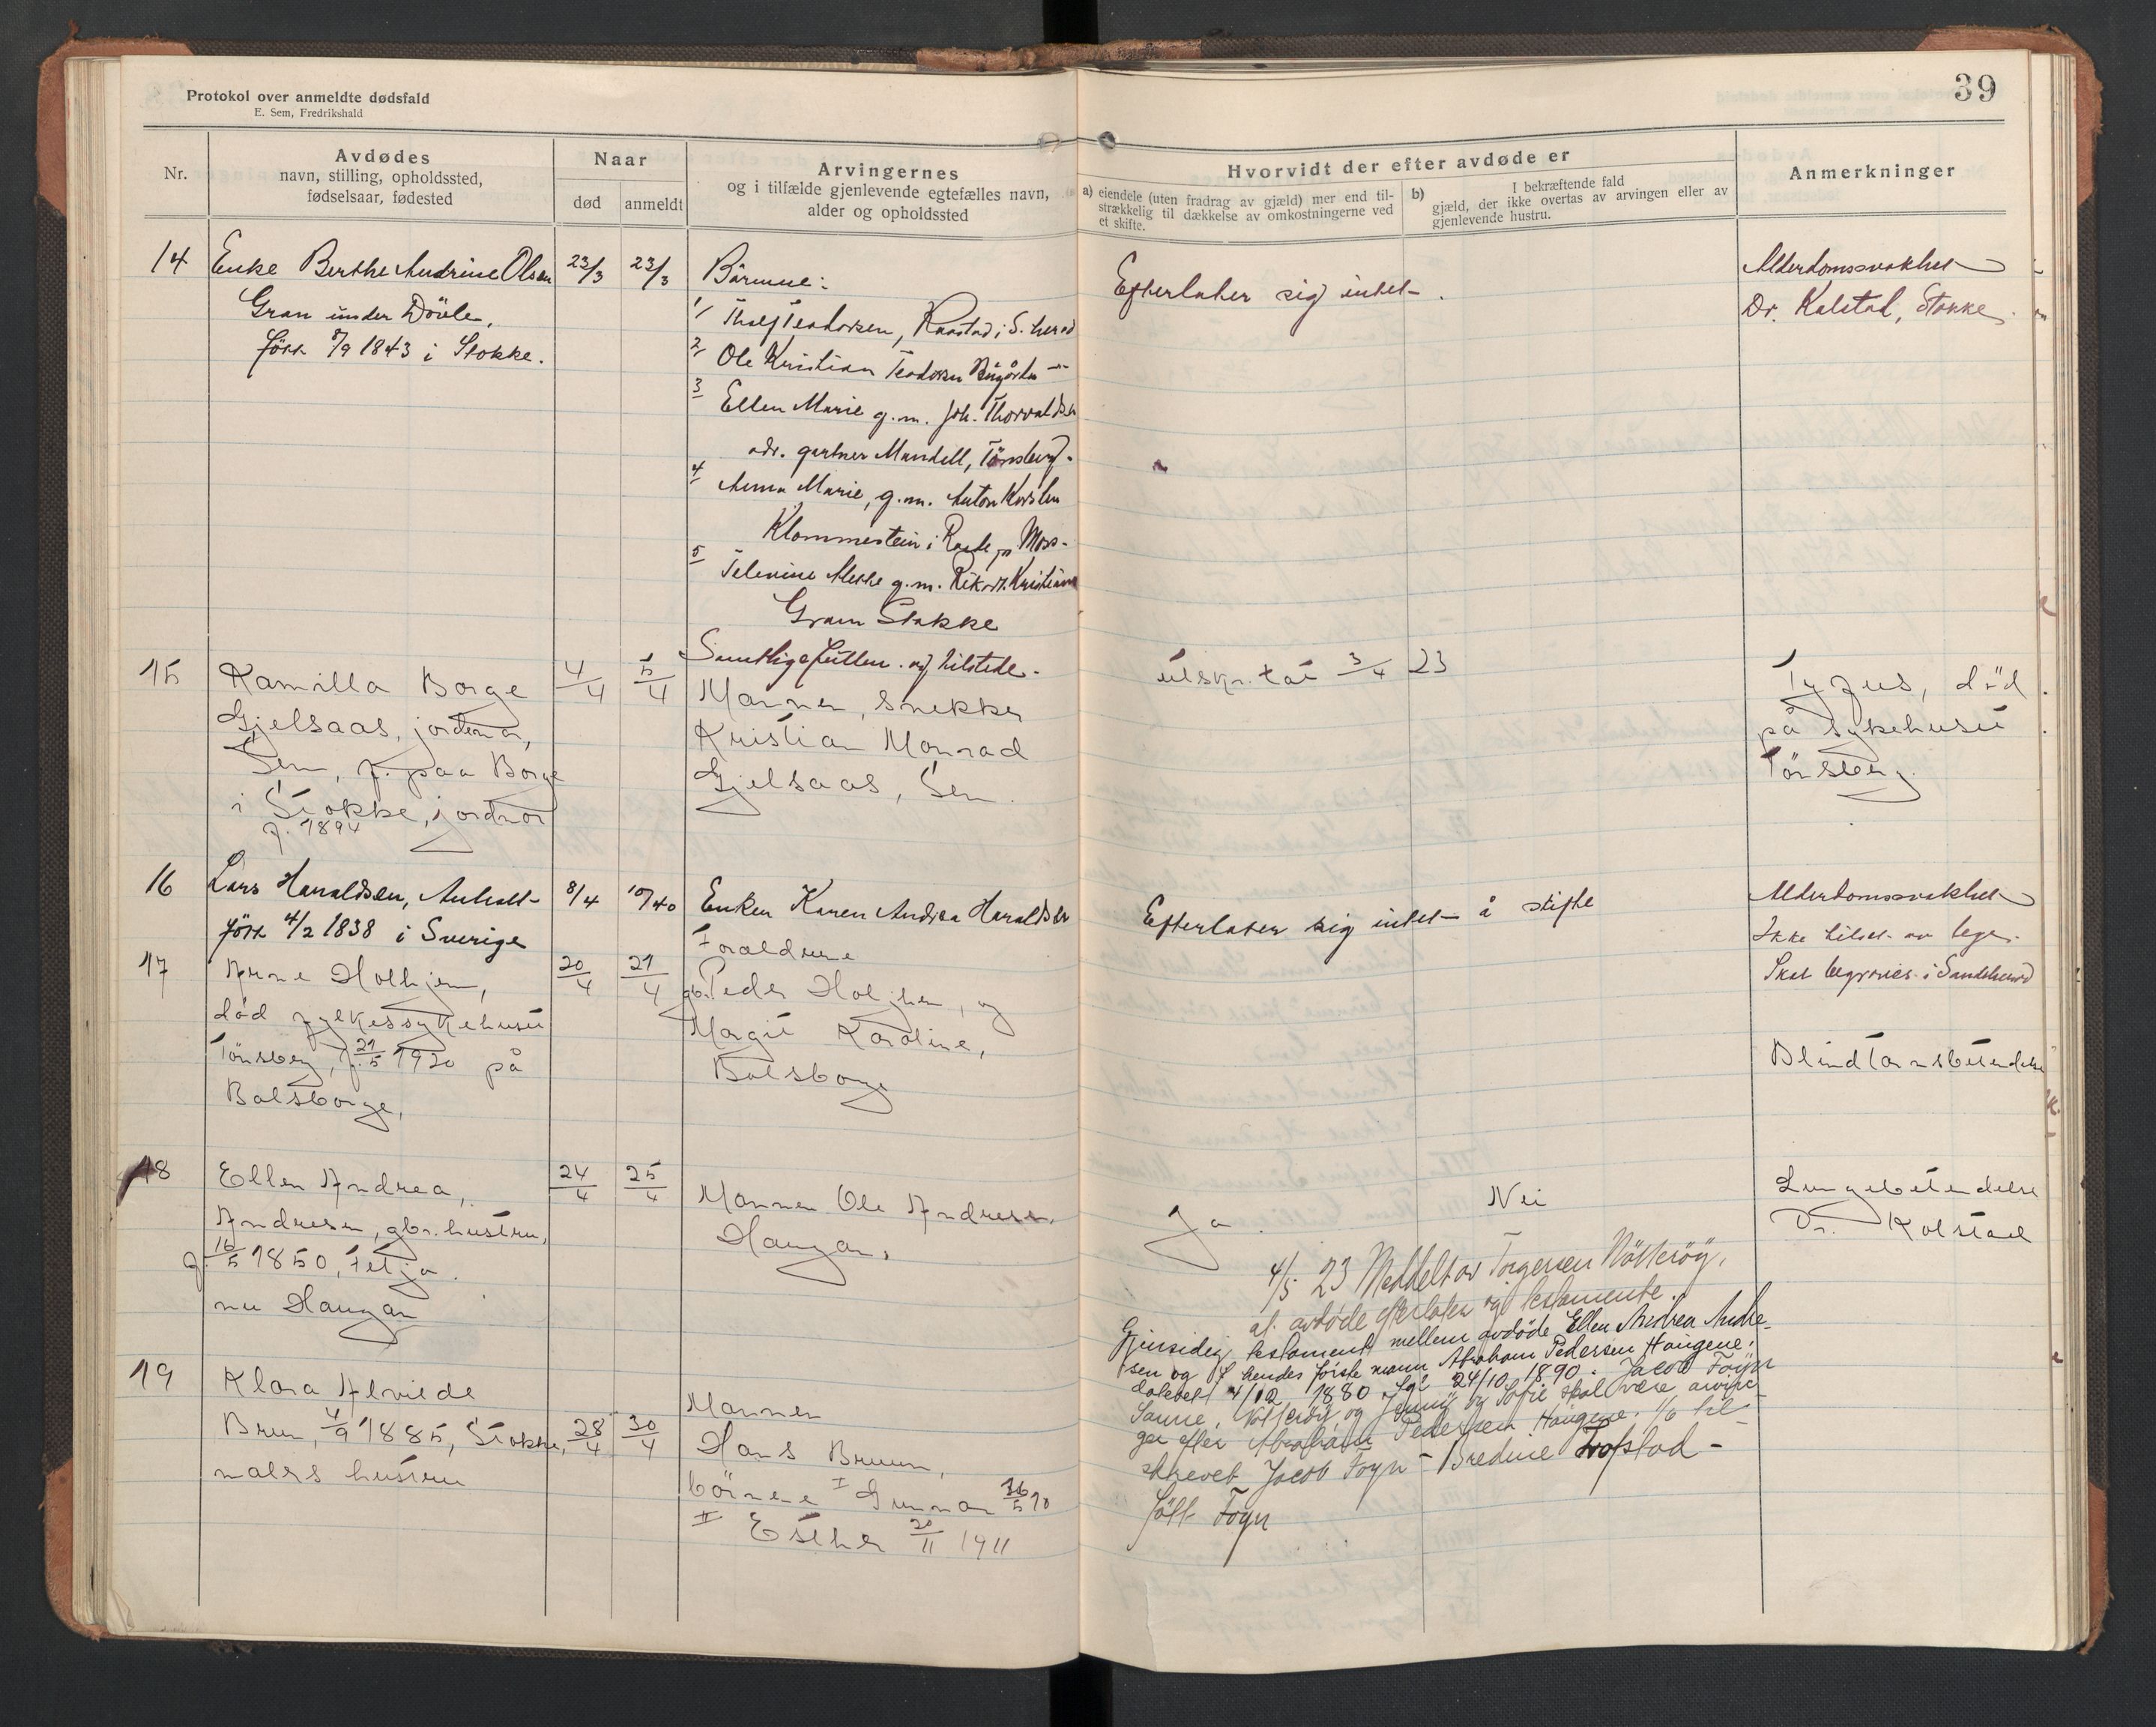 Protokol over anmeldte dødsfald
E. Sem, Fredrikshald
39
Nr.
Avdødes
navn, stilling, opholdssted,
fødselsaar, fødested
Naar
død
anmeldt
Arvingernes
og i tilfælde gjenlevende egtefælles navn,
alder og opholdssted
Hvorvidt der efter avdøde er
a) eiendele (uten fradrag av gjæld) mer end til-
strækkelig til dækkelse av omkostningerne ved
et skifte.
b) I bekræftende fald
gjæld, der ikke overtas av arvingen eller av
gjenlevende hustru.
Anmerkninger
14
Enke Berthe Andrine Olsen
Gran under Döule,
født 8/9 1843 i Stokke.
23/3
23/3
Börnene:
1/ Teodorsen, Raastad i S. herad
2, Ole Kristian Teodorsen
3 Ellen Marie g.m. Joh. Thorvaldsen
adr. gartner Mandell, Tönsberg.
4 Anna Marie, g.m. Anton Karslen
Klommestein i Rade pr Moss.
5 g.m. Rikart Kristiansen
Gran Stokke
Samtlige fuldm. og tilstede.
Efterlater sig intet.
Alderdomssvakhet
Dr. Kolstad, Stokke.
15
Kamilla Borge
Gjelsaas, jordmor,
Sem, f. paa Borge
i Stokke, jordmor
f. 1894
4/4
5/4
Mannen, snekker
Kristian Monrad
Gjelsaas, Sem.
utskr. tat 3/4 23
Tyfus, död
på sykehuset
Tönsberg.
16
Lars Haraldsen, Anholt
født 4/2 1838 i Sverige
8/4
10/40
Enken Karen Andrea Haraldsen
Efterlater sig intet å skifte
Alderdomssvakhet
Ikke tilset av lege.
Skal begraves i Sandeherred
17
Arne Holtjen,
död fylkessykehuset
Tönsberg, f. 21/5 1920 på
Bolsborge,
20/4
21/4
Foraldrene
gbr. Peder Holtjen, og
Margit Karoline,
Bolsborge
Blindtarmsbetendelse
18
Ellen Andrea,
Andresen, gbr. hustru,
f. 16/5 1850, Fetja.
nu Haugan
24/4
25/4
Mannen Ole Andresen.
Haugan,
Ja.
Nei
Lungebetendelse
Dr. Kolstad
4/5 23 Meddelt av Torgersen Nötteröy,
at avdøde efterlater sig testamente.
Gjensidig testament mellem avdøde Ellen Andrea Andre-
sen og hendes første mann Abraham Pedersen Haugene.
datert 4/12 1880 og 24/10 1890. Jacob Foyn
Sanne, Nötteröy og Jenny og Sofie skal være arvin-
ger efter Abraham Pedersen Haugene. 1/6 til-
skrevet Jacob Foyn - Bredine Trofstad -
Foyn
19
Klara Alvilde
Brun, 4/9 1885, Stokke,
malers hustru
28/4
30/4
Mannen
Hans Bruun,
börnene I Gunnar 16/5 10
II Esther 20/11 1911